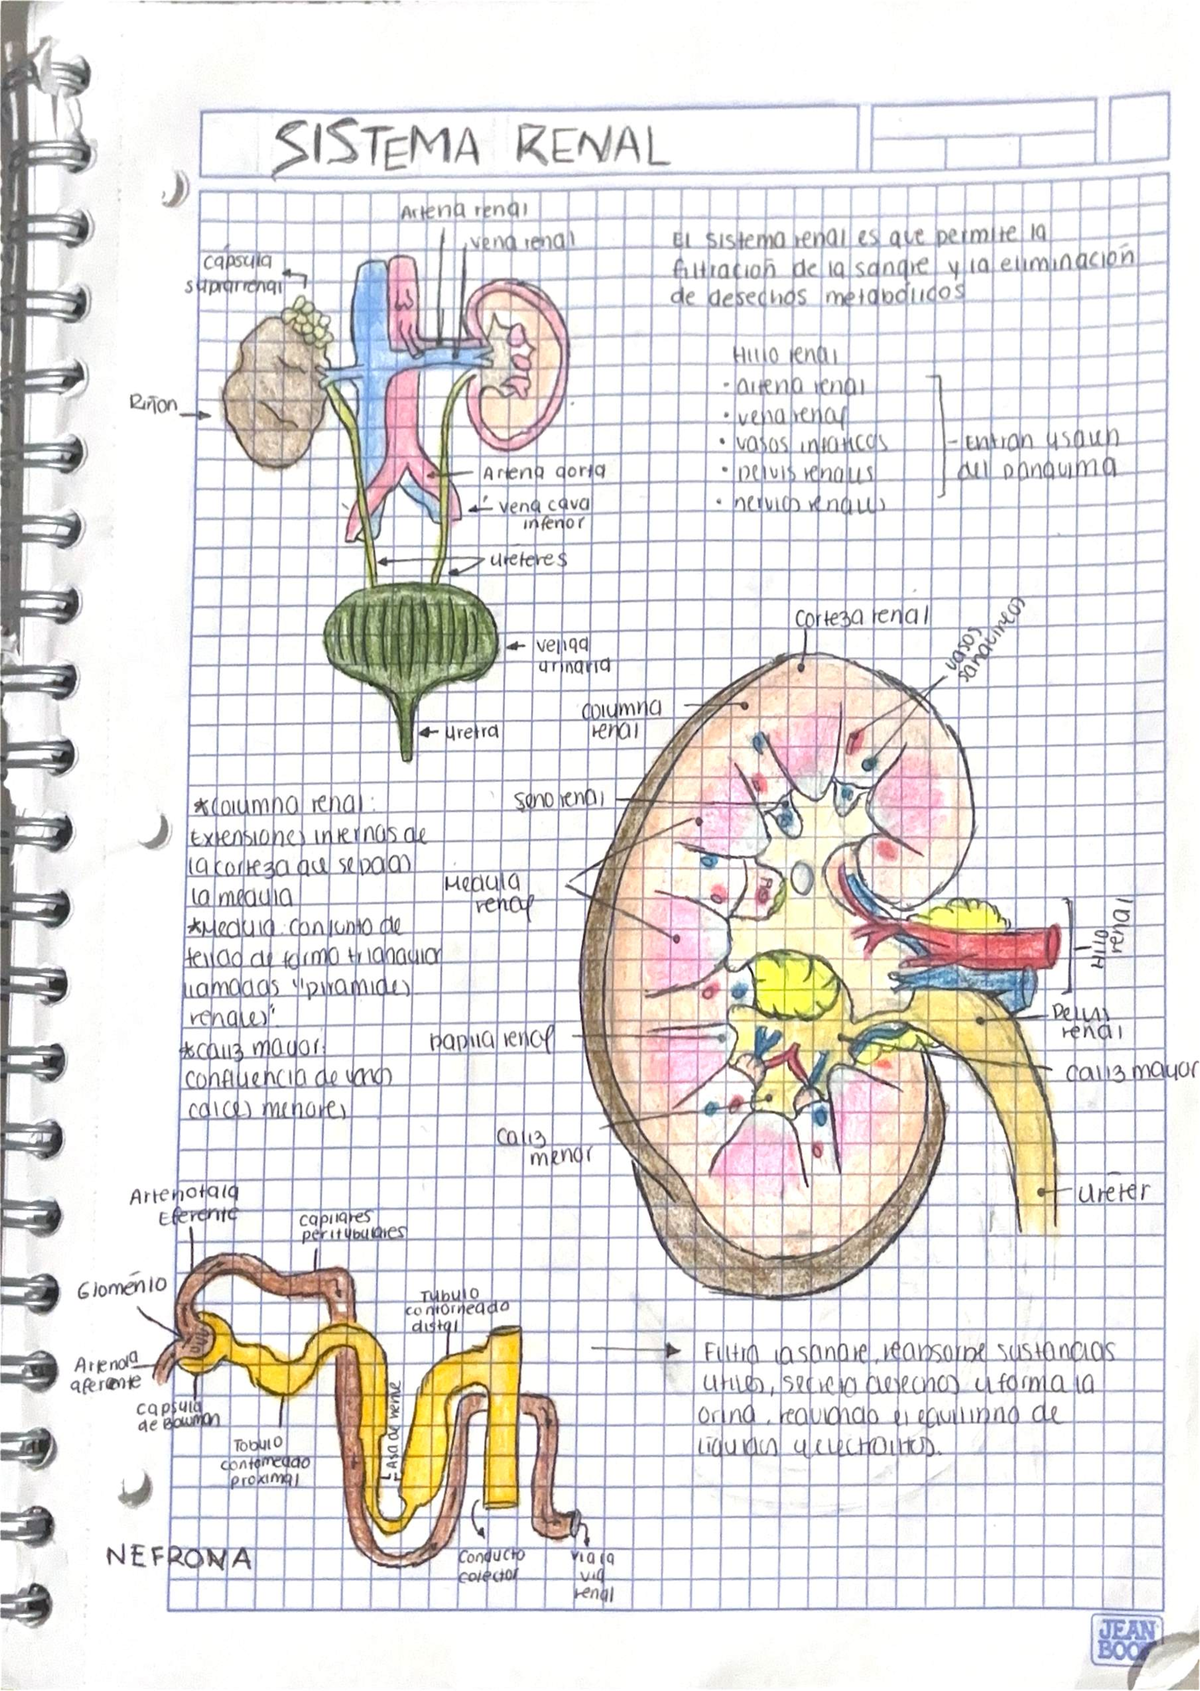 SISTEMA RENAL
Arteria renal
vena renal
cápsula
suprarrenal
Riñon
Arteria aorta
vena cava
inferior
uréteres
vejiga
urinaria
uretra
El sistema renal es que permite la
filtración de la sangre y la eliminación
de desechos metabólicos
Hilio renal
- arteria renal
• vena renal
• vasos linfaticos
• pelvis renales
• nervios renales
- Entran y salen
del
corteza renal
vasos
sanguineos
columna
renal
seno renal
Medula
renal
papila renal
caliz
menor
Hilio
renal
Pelvis
renal
caliz mayor
uréter
*columna renal:
Extensiones internas de
la corteza que separan
la medula
*Medula: conjunto de
tejido de forma triangular
llamadas "piramides
renales".
*caliz mayor:
confluencia de varios
calices menores
Arteriola
Eferente
capilares
peritubulares
Glomérulo
Arteriola
aferente
capsula
de Bowman
Tubulo
contorneado
proximal
Asa de Henle
Tubulo
contorneado
distal
Conducto
colector
via
renal
NEFRONA
Filtra la sangre, reabsorbe sustancias
utiles, secreta desechos y forma la
orina, regulando el equilibrio de
liquidos y electrolitos.
JEAN
BOOK